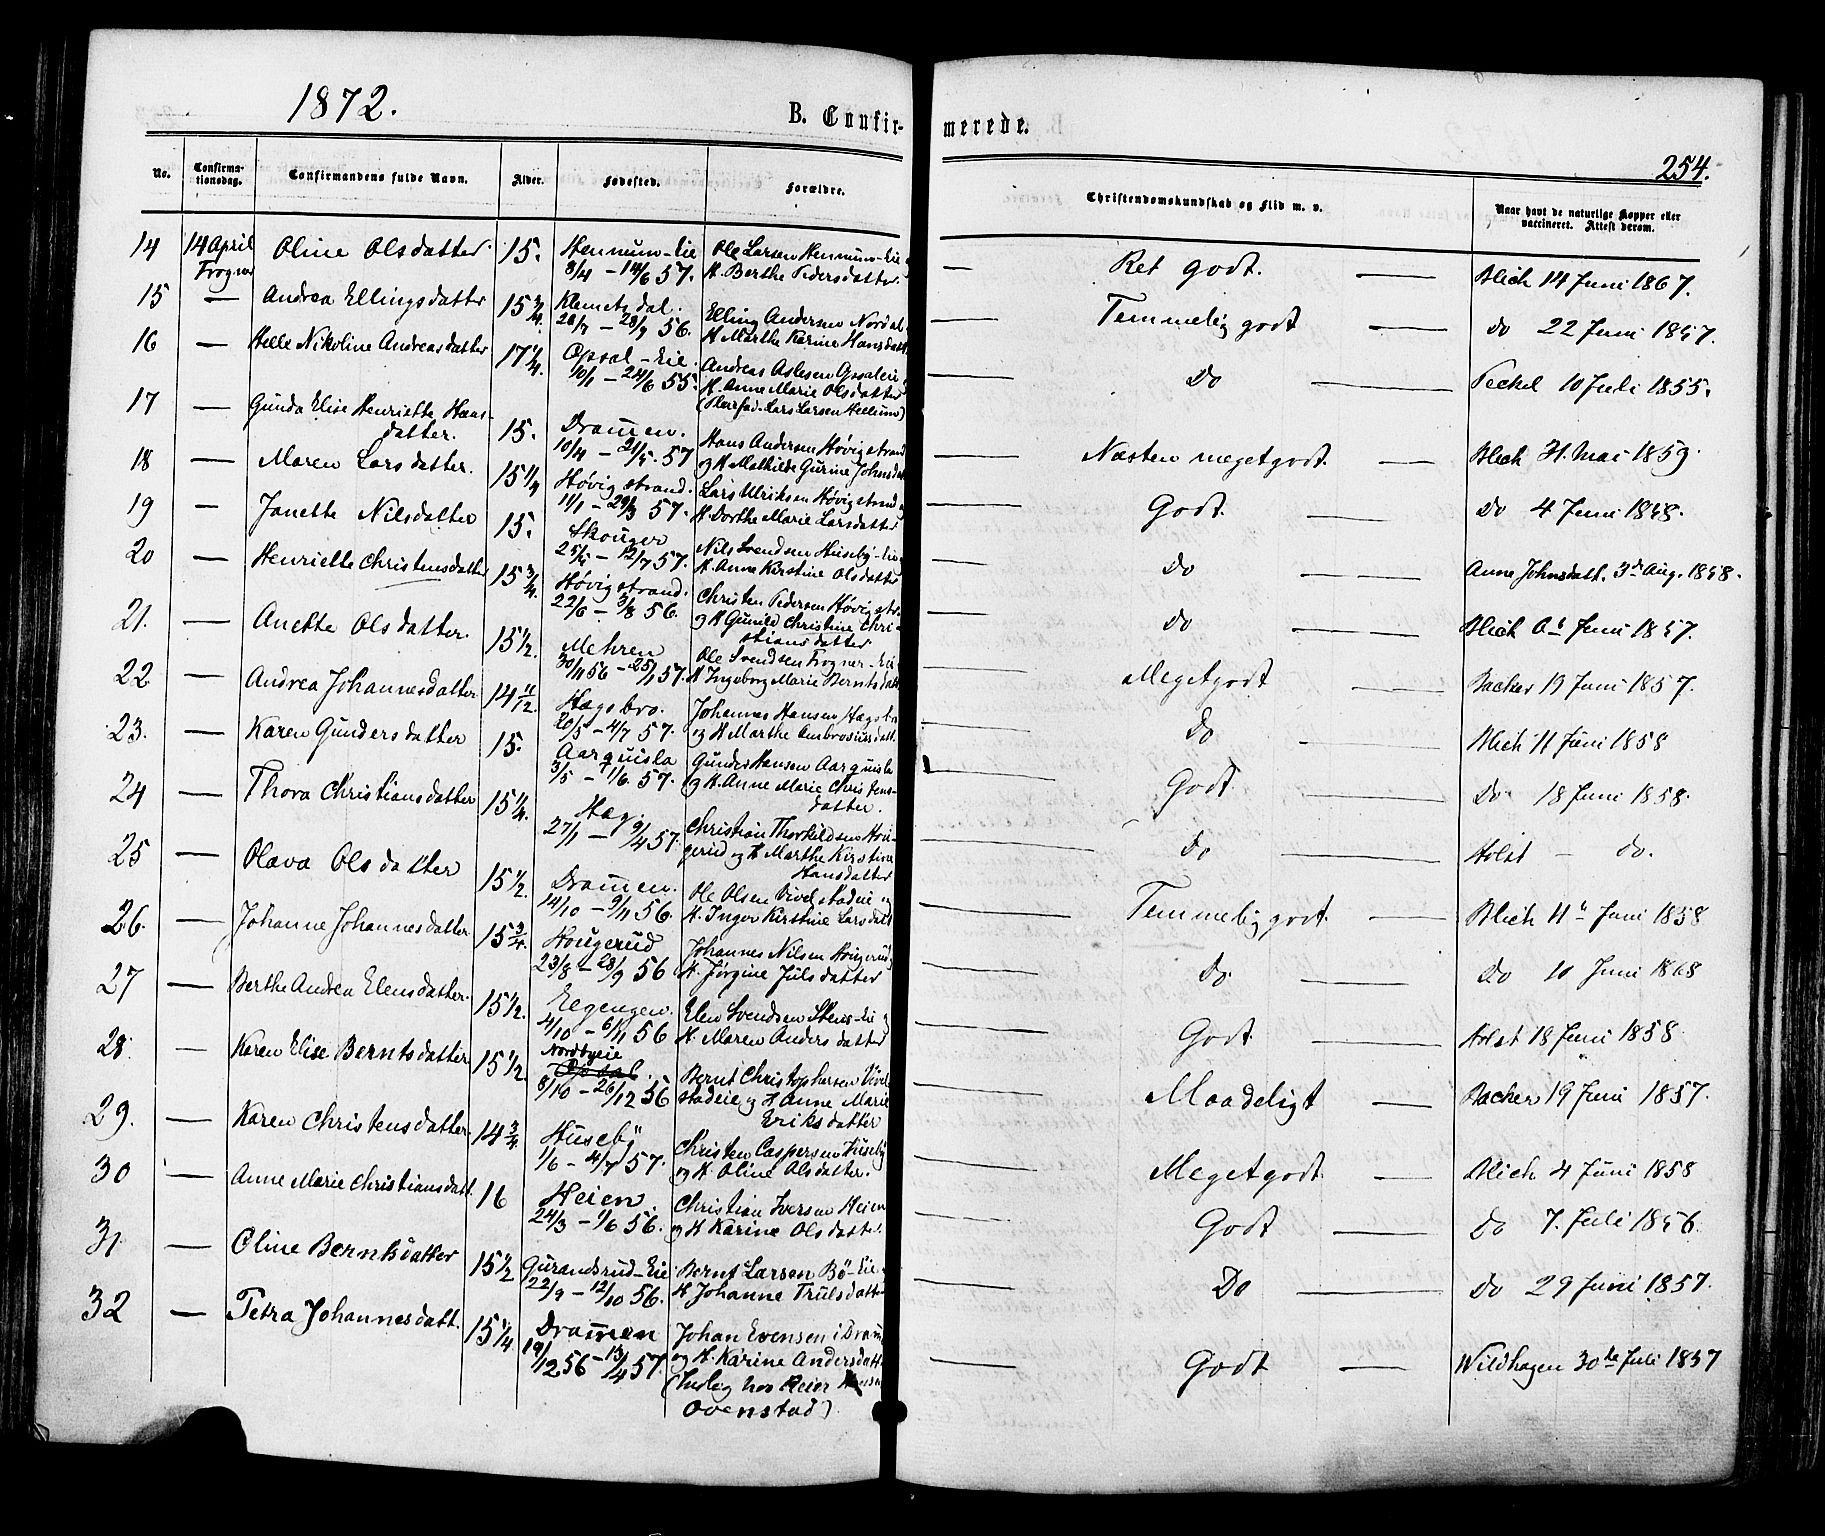 1872.
B. Confir-
merede.
254.
No.
Confirma-
tionsdag.
Confirmandens fulde Navn.
Alder.
Fødested.
Forældre.
Christendomskundskab og Flid m. v.
Naar havt de naturlige Kopper eller
vaccineret. Attest derom.
14 14 April Oline Olsdatter. 15. Hennum-Eie Ole Larsen Hennum-Eie
Frogner 8/4 - 14/6 57. H. Berthe Pedersdatter.
— Ret godt. — Blich 14 Juni 1867.
15 — Andrea Ellingsdatter 15 3/4. Klemetsdal. Elling Andersen Nordal
28/7 - 28/9 56. H Marthe Karine Hansdatt
— Temmelig godt — Do 22 Juni 1857.
16 — Helle Nikoline Andreasdatter 17 1/4. Opsal-Eie. Andreas Aslesen Opsaleie
10/1 - 24/6 55. H. Anne Marie Olsdatter
(Pleiefad. Lars Larsen Hellum)
— Do — Peckel 10 Juli 1855.
17 — Gunda Elise Henriette Hans- 15. Dramen. Hans Andersen Høvigstrand
datter. 10/4 - 21/5. 57 og H Mathilde Gurine Johnsdat
— Næsten megetgodt. — Blich 31. Mai 1859.
18 — Maren Larsdatter. 15 1/4 Høvigstrand. Lars Ulriksen Høvigstrand
11/1 - 29/3 57. H. Dorthe Marie Larsdatter
— Godt. — Do 4 Juni 1858.
19 — Janette Nilsdatter 15. Skouger Nils Svendsen Huseby-Eie
25/5 - 12/7 57. H. Anne Kirstine Olsdatter
— Do — Anne Johnsdatt. 3d Aug. 1858.
20 — Henriette Christensdatter 15 3/4 Høvigstrand. Christen Pedersen Høvigstr.
22/6 - 3/8 56. og H Gunild Christine Chri-
stiansdatter
— Do — Blich Juni 1857.
21. — Anette Olsdatter. 15 1/2. Mehren Ole Svendsen Frogner-Eie
30/11 56 - 25/1 57. H Ingeborg Marie Berntsdatt.
— Megetgodt — Backer 19 Juni 1857.
22 — Andrea Johannesdatter 14 11/12. Hagsbro. Johannes Hansen Hagsbr
20/5 - 4/7 57. og H Marthe Ambrosiusdatt.
— Do — Blich 11 Juni 1858
23. — Karen Gundersdatter 15. Aarquisla Gunder Hansen Aarquisla
3/5 - 1/6. 57. og H. Anne Marie Christens-
datter.
— Godt. — Do 18 Juni 1858.
24 — Thora Christiansdatter 15 1/4. Hag. Christian Thorkildsen Hou-
27/1 - 9/4 57. gerud og H Marthe Kirstine
Hansdatter
— Do — Holst — do.
25 — Olava Olsdatter 15 1/2. Dramen. Ole Olsen Vivelstadeie og
14/10 - 9/11 56. H. Inger Kirstine Larsdatt
— Temmelig godt. — Blich 11te Juni 1858
26. — Johanne Johannesdatter 15 3/4. Hougerud Johannes Nilsen Hougerud
23/8 - 28/9 56 H. Jørgine Julsdatter
— Do. — Do 10 Juni 1868
27 — Berthe Andrea Elensdatter. 15 1/2. Eegengen. Elen Svendsen Stens-Eie
4/10 - 6/11 56 H. Maren Andersdatter
— Godt — Holst 18 Juni 1858
28. — Karen Elise Berntsdatter 15 1/2. Nordbyeie Bernt Christophersen Vivel-
Opsal.
8/10 - 26/12 56 stadeie og H Anne Marie
Eriksdatter
— Maadeligt — Backer 19 Juni 1857.
29. — Karen Christensdatter 14 3/4 Huseby Christen Caspersen Huseby
1/6 - 4/7 57. og H. Oline Olsdatter.
— Megetgodt. — Blich 4 Juni 1858
30 — Anne Marie Christiansdatt. 16 Heien. Christian Iversen Heien
24/3 - 1/6 56. og H Karine Olsdatter.
— Godt — Do 7. Juli 1856.
31 — Oline Berntsdatter 15 1/2 Gurandsrud-Eie Bernt Larsen Bø-Eie
22/9 - 12/10 56. H Johanne Trulsdatt
— Do — Do 29 Juni 1857.
32 — Petra Johannesdatt. 15 1/4 Dramen Johan Evensen i Dram
19/12 56 - 13/4 57. og H. Karine Andersdatt
(Inderst hos Reier
Ovenstad)
— Godt — Wildhagen 30te Juli 1857